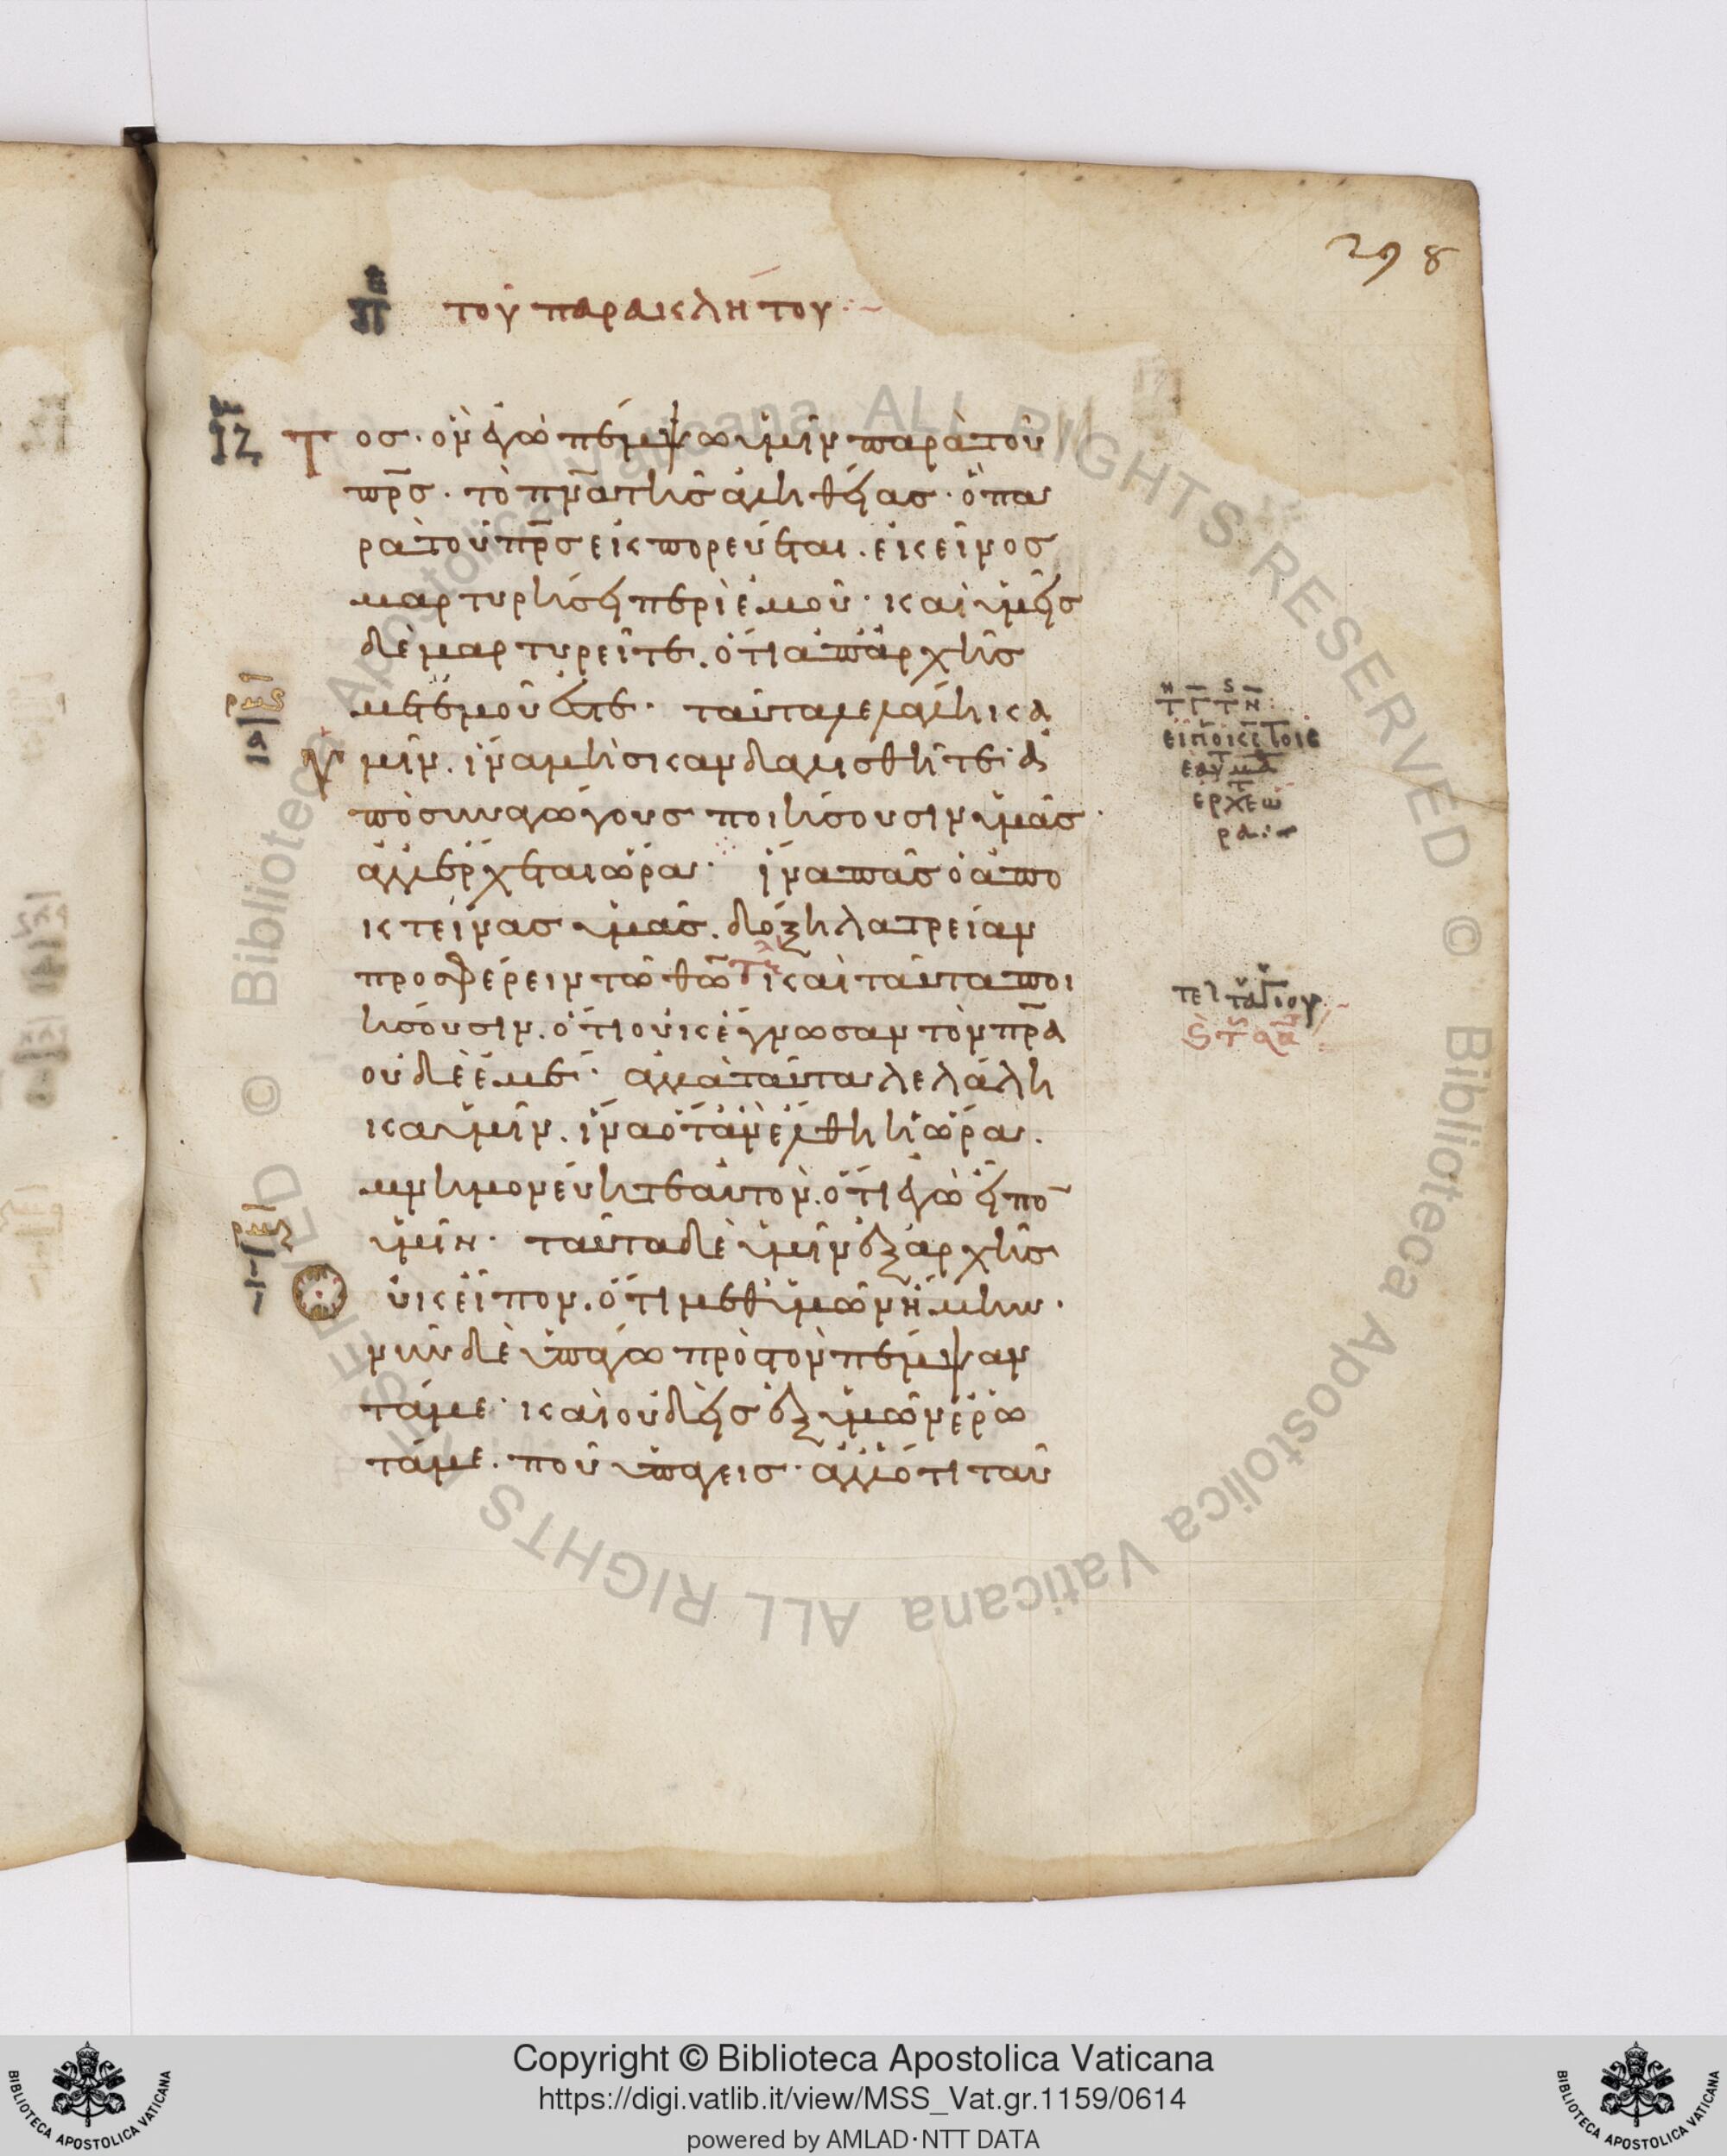 298
πε τοῦ παρακλήτου
ΙΖ Τος· ὃν ἐγὼ πέμψω ὑμῖν παρὰ τοῦ
πρσ· τὸ πνα τῆς ἀληθείας· ὃ πα
ρὰ τοῦ πρσ ἐκπορεύεται. ἐκεῖνος
μαρτυρήσει περὶ ἐμοῦ· καὶ ὑμεῖς
δὲ μαρτυρεῖτε. ὅτι ἀπ' ἀρχῆς
μετ' ἐμοῦ ἐστε· ταῦτα λελάληκα
ὑμῖν. ἵνα μὴ σκανδαλισθῆτε· ἀ
ποσυναγώγους ποιήσουσιν ὑμᾶς·
ἀλλ' ἔρχεται ὥρα· ἵνα πᾶς ὁ ἀπο
κτείνας ὑμᾶς. δόξῃ λατρείαν
προσφέρειν τῷ θω καὶ ταῦτα ποι
ήσουσιν. ὅτι οὐκ ἔγνωσαν τὸν πρα
οὐδὲ ἐμέ· ἀλλὰ ταῦτα λελάλη
κα ὑμῖν. ἵνα ὅταν ἔλθῃ ἡ ὥρα.
μνημονεύητε αὐτῶν. ὅτι ἐγὼ εἶπο
ὑμῖν· ταῦτα δὲ ὑμῖν ἐξ ἀρχῆς
οὐκ εἶπον. ὅτι μεθ' ὑμῶν ἤμην·
νῦν δὲ ὑπάγω πρὸς τὸν πέμψαν
τά με· καὶ οὐδεὶς ἐξ ὑμῶν ἐρω
τᾷ με. ποῦ ὑπάγεις· ἀλλ' ὅτι ταῦ
Copyright © Biblioteca Apostolica Vaticana
https://digi.vatlib.it/view/MSS_Vat.gr.1159/0614
powered by AMLAD·NTT DATA
BIBLIOTECA APOSTOLICA VATICANA
BIBLIOTECA APOSTOLICA VATICANA